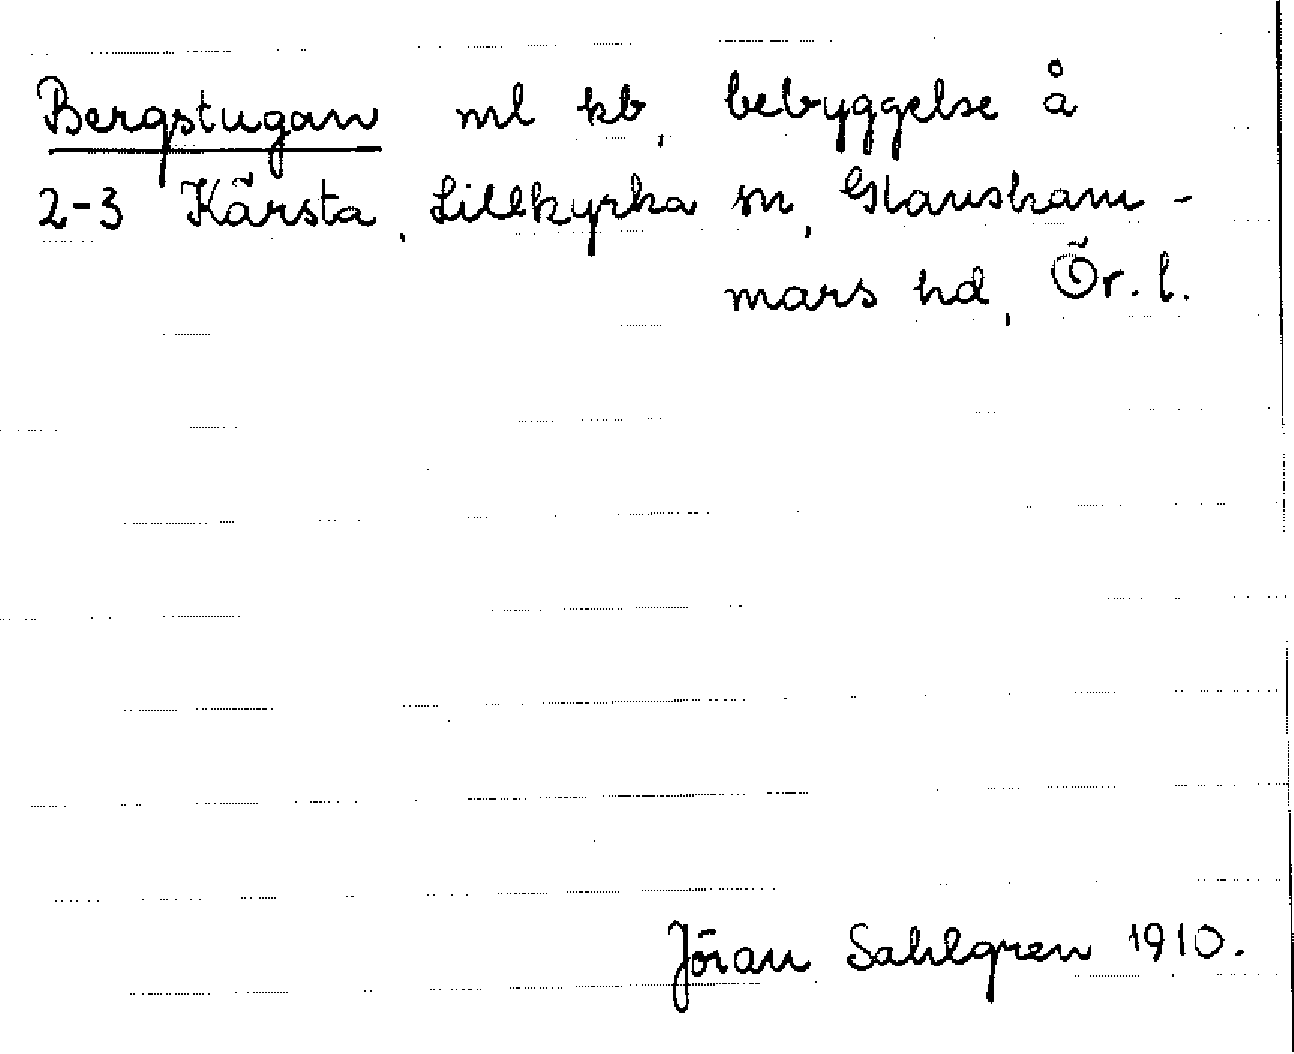 Bergstugan ml kb, bebyggelse å
2-3 Kärsta, Lillkyrka sn, Glansham-
mars hd, Ör. l.
Jöran Sahlgren 1910.